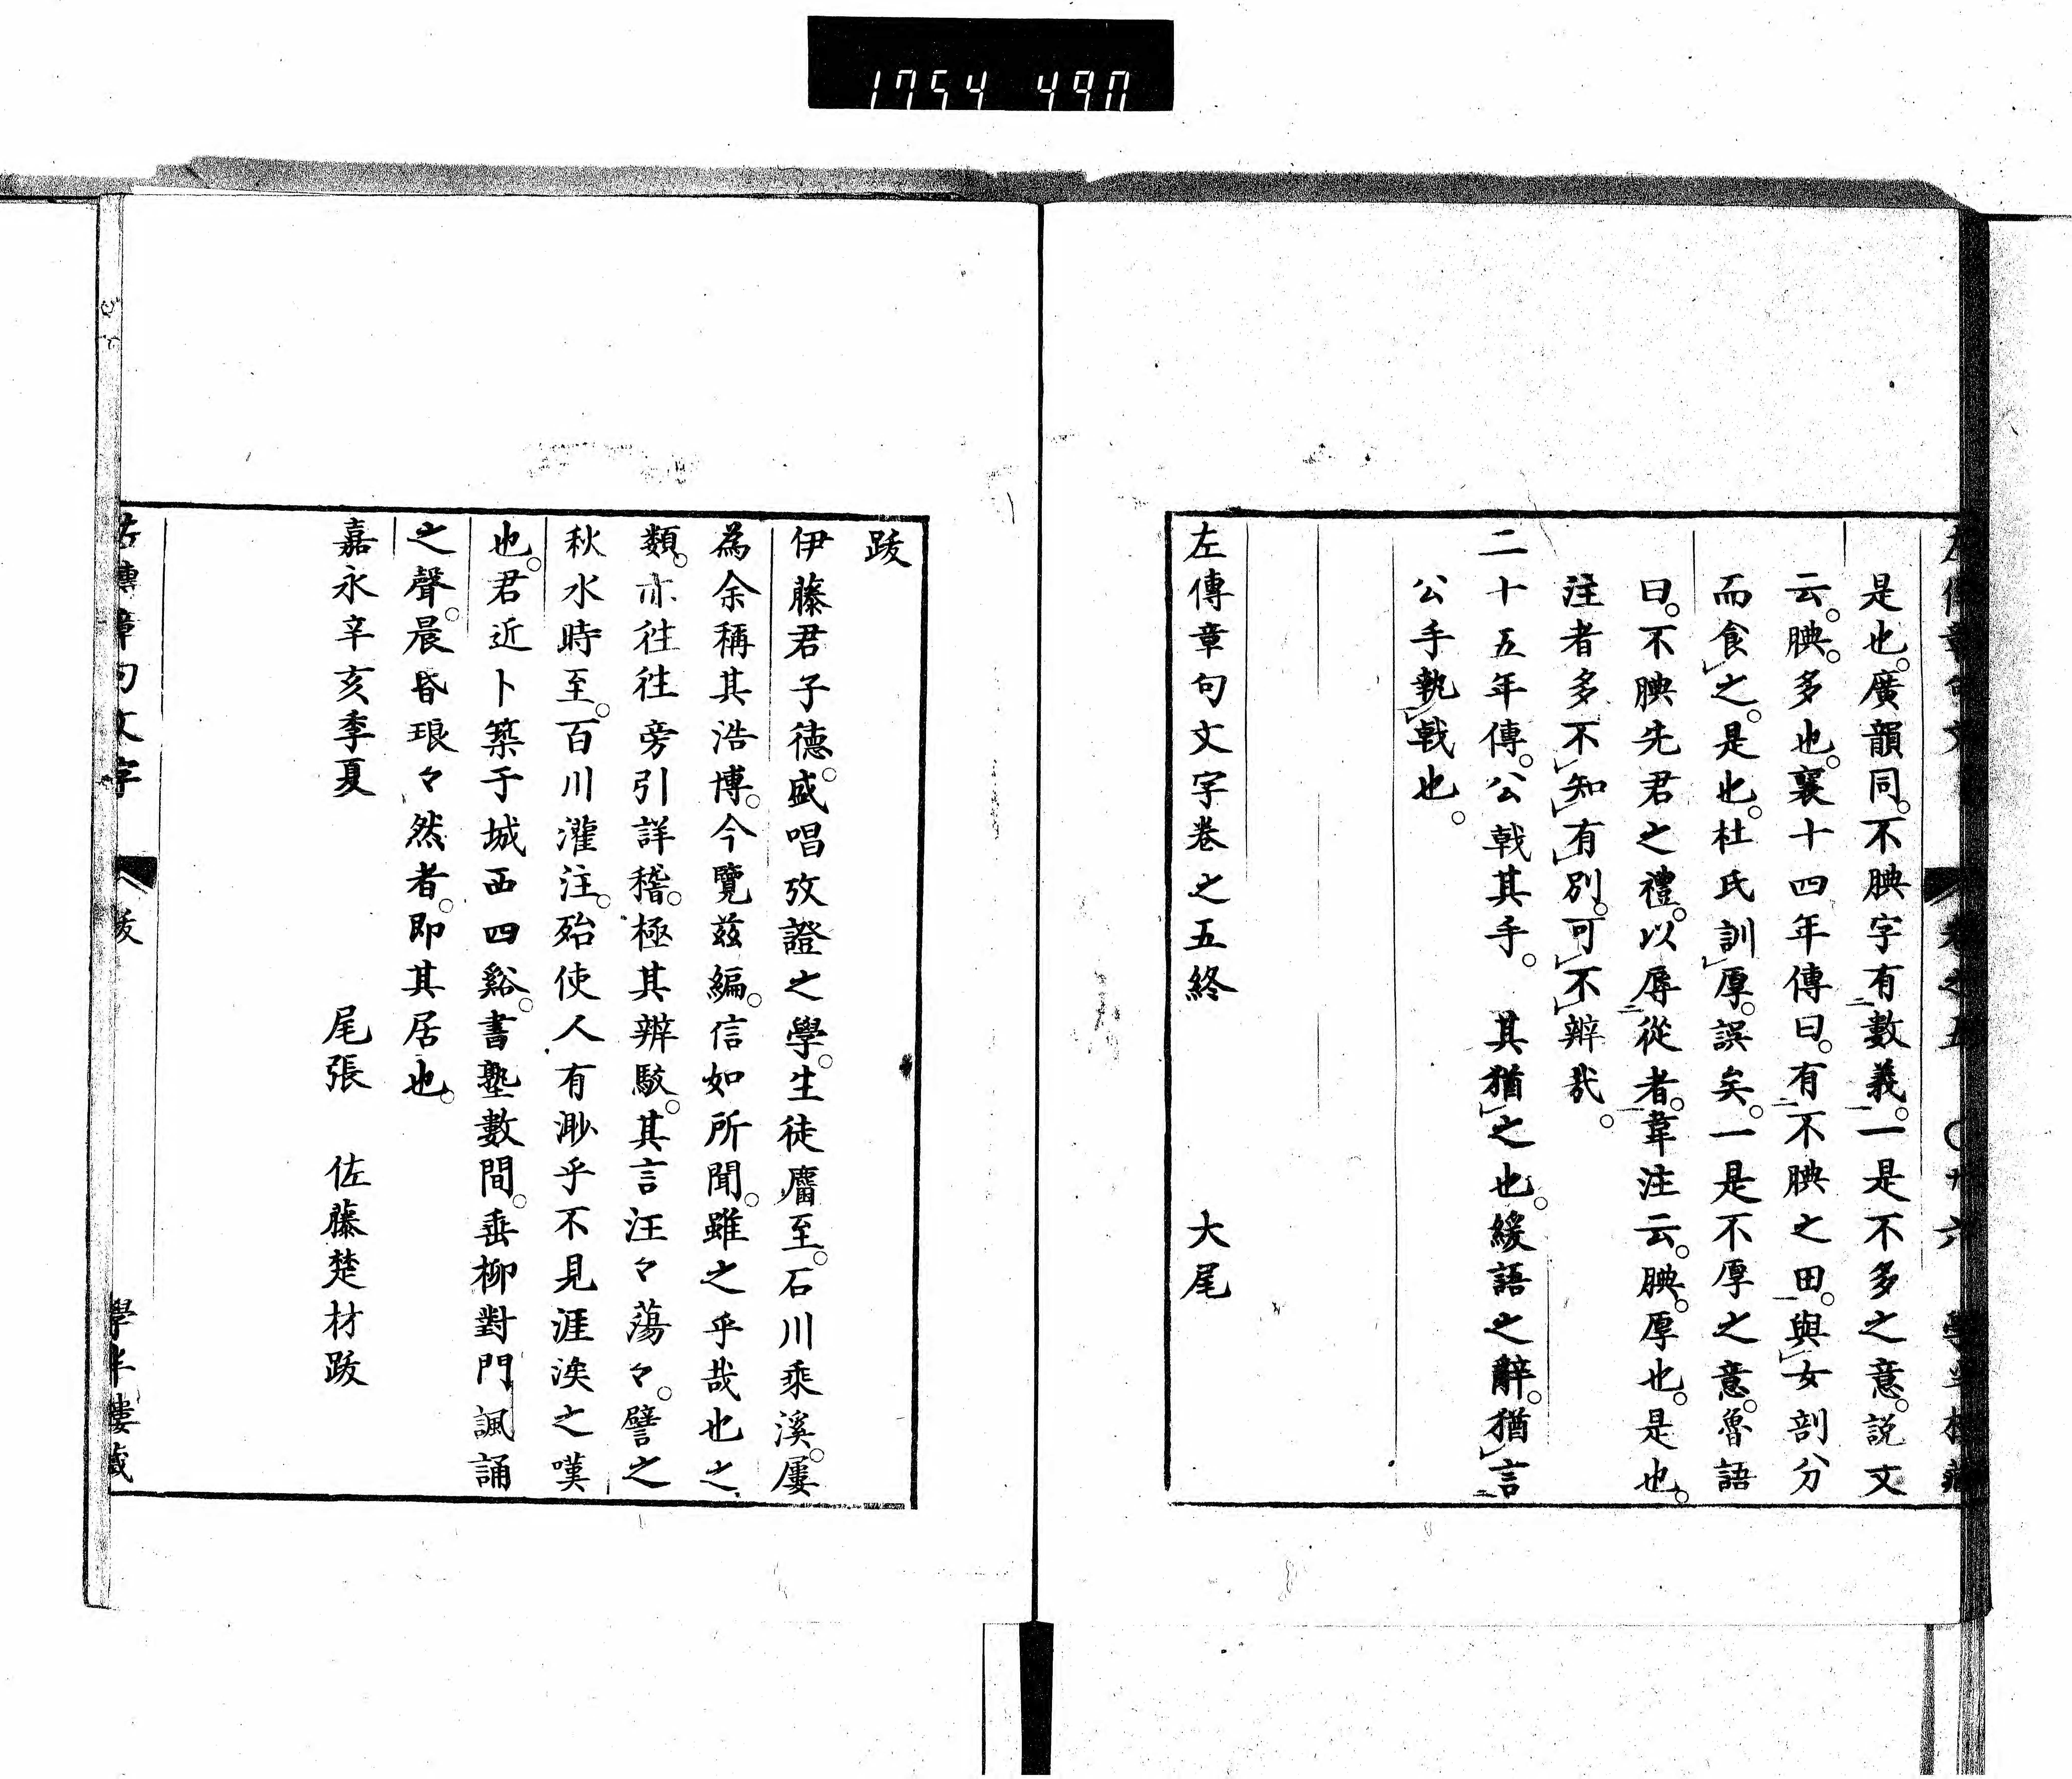 1754 490
是也。廣韻同。不腆字有數義。一是不多之意。說文
云。腆。多也。襄十四年傳曰。有不腆之田。與女剖分
而食之。是也。杜氏訓厚。誤矣。一是不厚之意。魯語
曰。不腆先君之禮。以辱從者。韋注云。腆。厚也。是也。
注者多不知有別。可不辨哉。
二十五年傳。公戟其手。 其猶之也。緩語之辭。猶言
公手執戟也。
左傳章句文字卷之五終 大尾
跋
伊藤君子德。盛唱攷證之學。生徒麕至。石川乘溪。屢
為余稱其浩博。今覽茲編。信如所聞。雖之乎哉也之
類。亦往往旁引詳稽。極其辨駁。其言汪々蕩々。譬之
秋水時至。百川灌注。殆使人有渺乎不見涯涘之嘆
也。君近卜築于城西四谿。書塾數間。垂柳對門諷誦
之聲。晨昏琅々然者。即其居也。
嘉永辛亥季夏
尾張 佐藤楚材跋
左傳章句文字 跋 學半樓藏